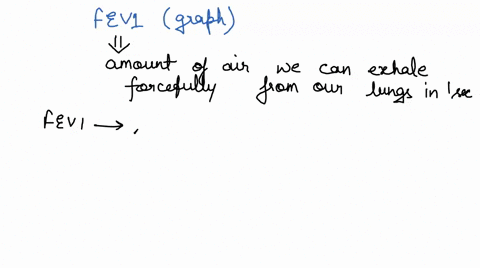 FEV1 (graph)
⇓
amount of air we can exhale
forcefully from our lungs in 1 sec
FEV1 →